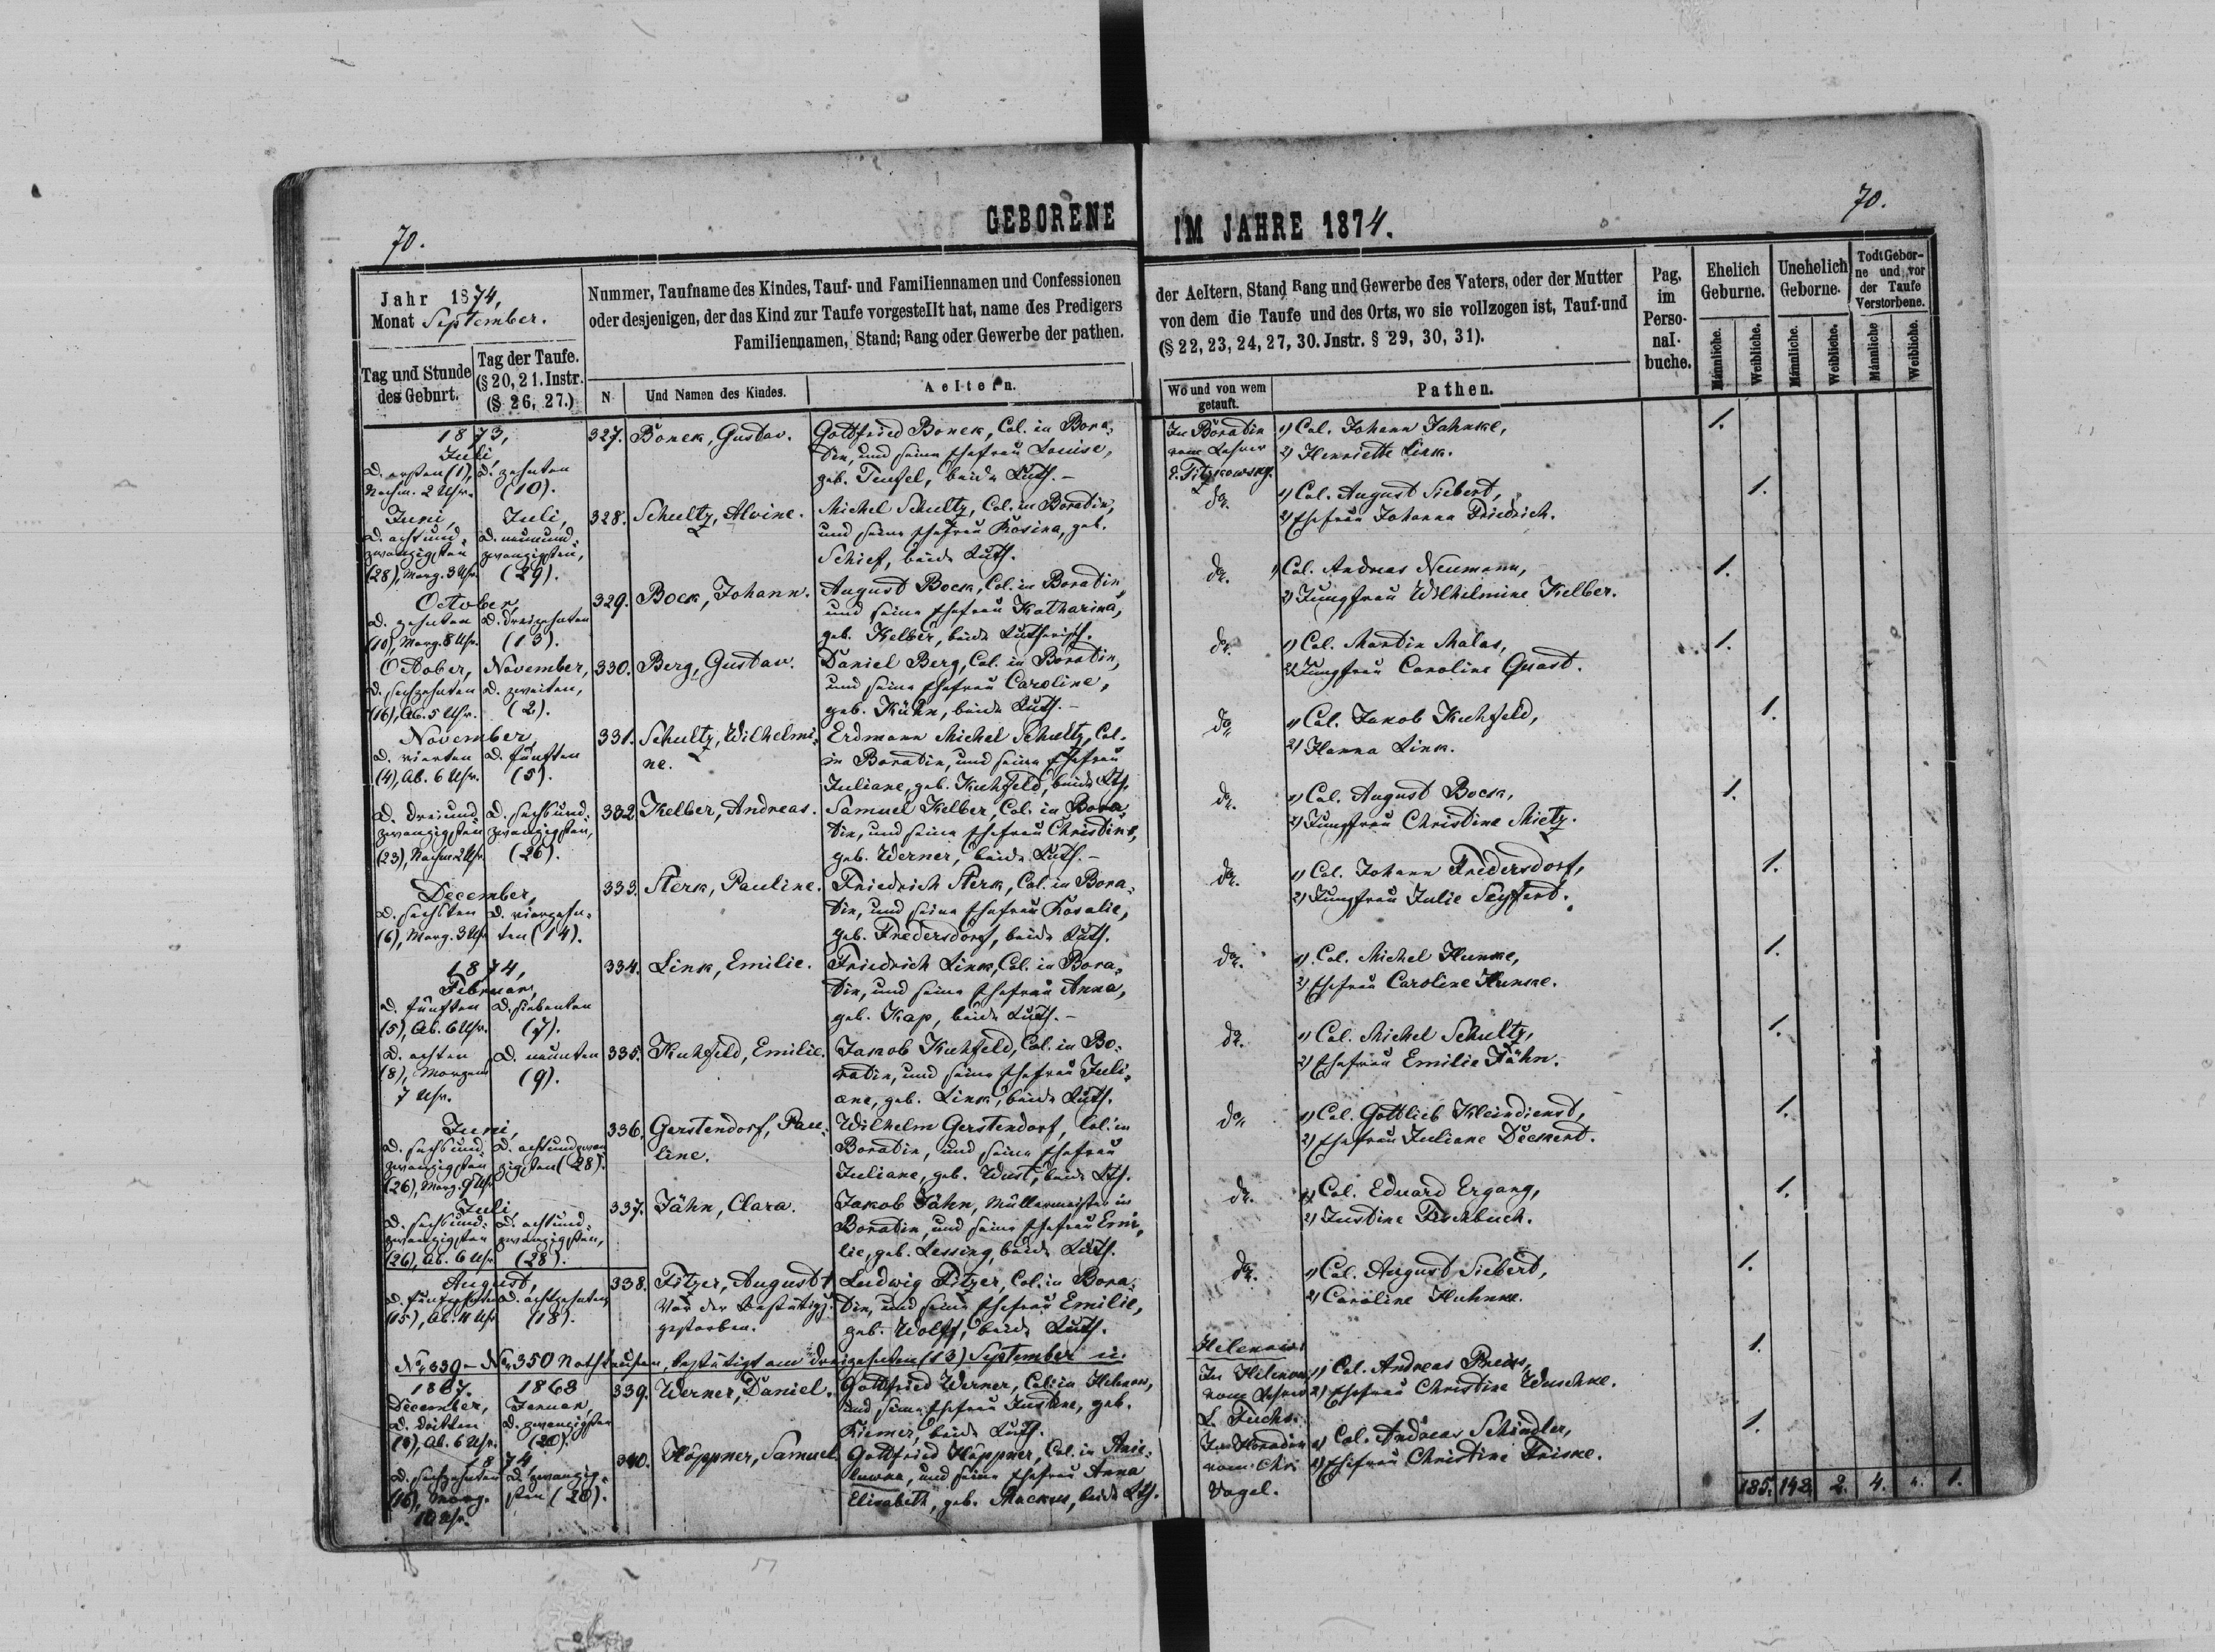 70.
GEBORENE
IM JAHRE 1874.
70.
Jahr 1874,
Monat September.
Tag und Stunde
des Geburt.
Tag der Taufe.
(§ 20, 21. Instr.
(§ 26, 27.)
Nummer, Taufname des Kindes, Tauf- und Familiennamen und Confessionen
oder desjenigen, der das Kind zur Taufe vorgestellt hat, name des Predigers
Familiennamen, Stand; Rang oder Gewerbe der pathen.
N
Und Namen des Kindes.
Aeltern.
der Aeltern, Stand Rang und Gewerbe des Vaters, oder der Mutter
von dem die Taufe und des Orts, wo sie vollzogen ist, Tauf-und
(§ 22, 23, 24, 27, 30. Jnstr. § 29, 30, 31).
Wo und von wem
getauft.
Pathen.
Pag,
im
Perso-
nal-
buche.
Ehelich
Geburne.
Unehelich
Geborne.
Todt Gebor-
ne und vor
der Taufe
Verstorbene.
Männliche.
Weibliche.
Männliche.
Weibliche.
Männliche
Weibliche.
1873,
Juli,
D. ersten (1),
Nachm. 2 Uhr.
D. zehnten
(10).
327.
Bonek, Gustav.
Gottfried Bonek, Col. in Bora-
tin, und seine Ehefrau Louise,
geb. Teufel, beide Luth. -
In Boratin
vom Lehrer
1) Col. Johann Jahnke,
2) Henriette Link.
1.
Juni,
D. achtund-
zwanzigsten
(28), Morg. 3 Uhr.
Juli,
D. neunund-
zwanzigsten,
(29).
328.
Schultz, Alvine.
Michel Schultz, Col. in Boratin,
und seine Ehefrau Rosina, geb.
Schief, beide Luth.
do.
1) Col. August Siebert,
2) Ehefrau Johanna Friedrich.
1.
October,
D. zehnten
(10), Morg. 8 Uhr.
D. dreizehnten
(13).
329.
Bock, Johann.
August Bock, Col. in Boratin,
und seine Ehefrau Katharina,
geb. Kelber, beide Lutherisch.
do.
1) Col. Andreas Neumann,
2) Jungfrau Wilhelmine Kelber.
1.
October,
D. sechzehnten
(16), Ab. 5 Uhr.
November,
D. zweiten,
(2).
330.
Berg, Gustav.
Daniel Berg, Col. in Boratin,
und seine Ehefrau Caroline,
geb. Kühn, beide Luth. -
do.
1) Col. Martin Malas,
2) Jungfrau Caroline Quast.
1.
November,
D. vierten
(4), Ab. 6 Uhr.
D. fünften
(5).
331.
Schultz, Wilhelmi-
ne.
Erdmann Michel Schultz, Col.
in Boratin, und seine Ehefrau
Juliane, geb. Kuhfeld, beide Lth.
do.
1) Col. Jakob Kuhfeld,
2) Hanna Link.
1.
D. dreiund-
zwanzigsten
(23), Nachm. 2 Uhr
D. sechsund-
zwanzigsten,
(26).
332.
Kelber, Andreas.
Samuel Kelber, Col. in Bora-
tin, und seine Ehefrau Christine,
geb. Werner, beide Luth. -
do.
1) Col. August Bock,
2) Jungfrau Christine Mietz.
1.
December,
D. sechsten
(6), Morg. 3 Uhr
D. vierzehn-
ten (14).
333.
Sterk, Pauline.
Friedrich Sterk, Col. in Bora-
tin, und seine Ehefrau Rosalie,
geb. Fredersdorf, beide Luth.
do.
1) Col. Johann Fredersdorf,
2) Jungfrau Julie Seyfert.
1.
1874,
Februar,
D. fünften
(5), Ab. 6 Uhr.
D. siebenten
(7).
334.
Link, Emilie.
Friedrich Link, Col. in Bora-
tin, und seine Ehefrau Anna,
geb. Kap, beide Luth. -
do.
1) Col. Michel Hunke,
2) Ehefrau Caroline Hunke.
1.
D. achten
(8), Morgens
7 Uhr.
D. neunten
(9).
335.
Kuhfeld, Emilie.
Jakob Kuhfeld, Col. in Bo-
ratin, und seine Ehefrau Juli-
ane, geb. Link, beide Luth.
do.
1) Col. Michel Schultz,
2) Ehefrau Emilie Jähn.
1.
Juni,
D. sechsund-
zwanzigsten
(26), Morg. 9 Uhr
D. achtundzwan-
zigsten (28).
336.
Gerstendorf, Pau-
line.
Wilhelm Gerstendorf, Col. in
Boratin, und seine Ehefrau
Juliane, geb. Wust, beide Lth.
do.
1) Col. Gottlieb Kleindienst,
2) Ehefrau Juliane Deckert.
1.
Juli,
D. sechsund-
zwanzigsten
(26), Ab. 6 Uhr
D. achtund-
zwanzigsten,
(28).
337.
Jähn, Clara.
Jakob Jähn, Müllermeister in
Boratin, und seine Ehefrau Emi-
lie, geb. Lessing, beide Luth.
do.
1) Col. Eduard Ergang,
2) Justine Fischbuch.
1.
August,
D. fünfzehnten
(15), Ab. 4 Uhr
D. achtzehnten
(18).
338.
Fitzer, August †
Vor der Bestätigg.
gestorben.
Ludwig Fitzer, Col. in Bora-
tin, und seine Ehefrau Emilie,
geb. Wolff, beide Luth.
do.
1) Col. August Siebert,
2) Caroline Huhnke.
1.
No. 339 - No. 350 Nothtaufen, bestätigt am dreizehnten (13) September in
Helenow:
1867.
December,
D. dritten
Ab. 6 Uhr.
1868
Januar,
D. zwanzigsten
(20).
339.
Werner, Daniel.
Gottfried Werner, Col. in Helenow,
und seine Ehefrau Justine, geb.
Kiemer, beide Luth.
In Helenow
vom Lehrer
L. Fuchs.
1) Col. Andreas Preiss,
2) Ehefrau Christine Waschke.
1.
1874,
D. sechzehnten
(16), Morg.
10 Uhr.
D. zwanzig-
sten (20).
340.
Höppner, Samuel.
Gottfried Höppner, Col. in
und seine Ehefrau Anna
Elisabeth, geb. beide Lth.
vom Chr.
Vogel.
1) Col. Andreas Schindler,
2) Ehefrau Christine Friske.
1.
185. 148. 2. 4. 4. 1.